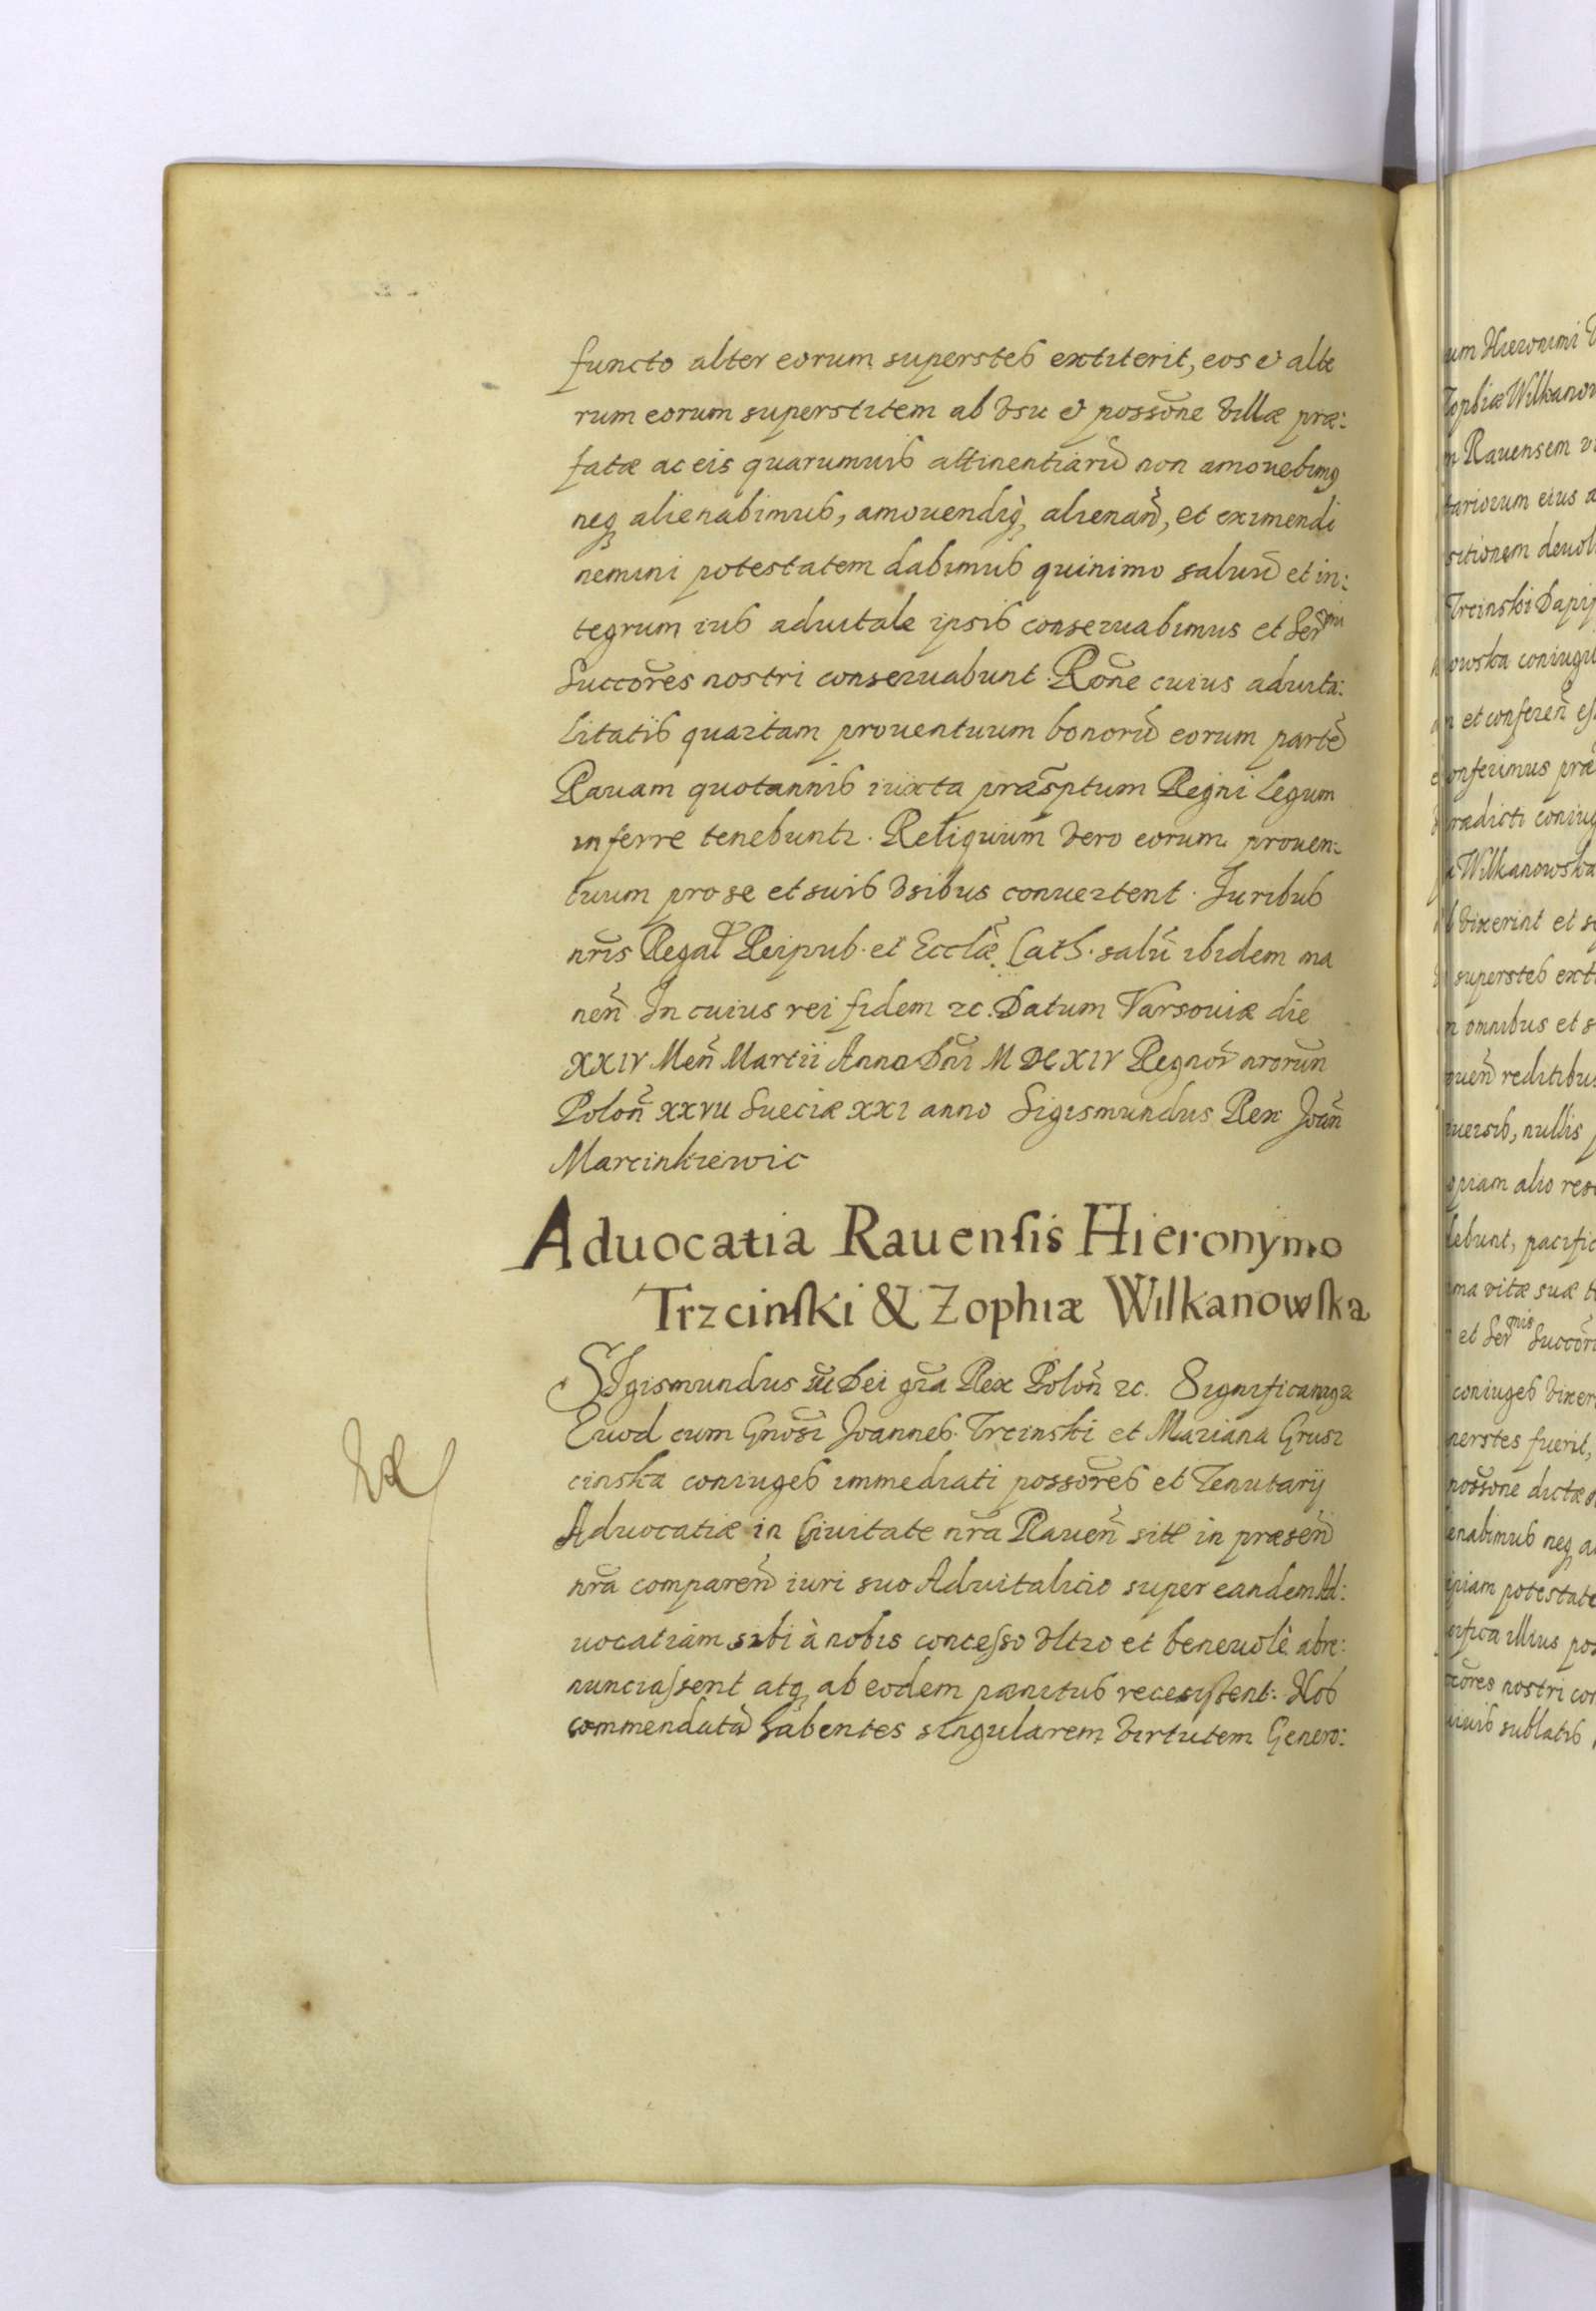 functo alter eorum superstes extiterit, eos et alte
rum eorum superstitem ab vsu et possõne villæ præ:
fatæ ac eis quarumuis attinentiarũ non amouebimꝰ
neqꝫ alienabimus, amouendiqꝫ, alienañ, et eximendi
nemini potestatem dabimus quinimo saluũ et in:
tegrum ius aduitale ipsis conseruabimus et Serᵐⁱ
Succõres nostri conseruabunt. Rõne cuius aduita:
litatis quartam prouentuum bonorũ eorum partẽ
Rauam quotannis iuxta præsc̃ptum Regni legum
inferre tenebuntr. Reliquium vero eorum prouen:
tuum pro se et suis vsibus conuertent. Juribus
nr̃is Regal̃ Reipub. et Eccl̃æ Cath. salũ ibidem ma
neñ In cuius rei fidem ꝛc. Datum Varsouiæ die
XXIV Meñ Martii Anno Dñi M DC XIV Regnor̃ nrorũm
Poloñ XXVII Sueciæ XXI anno Sigismundus Rex Joañ
Marcinkiewic
Aduocatia Rauensis Hieronymo
Trzcinski & Zophiæ Wilkanowska
SIgismundus III Dei gr̃a Rex Poloñ ꝛc. Significamꝰ ꝛ
Quod cum Gnõsi Joannes Trcinski et Mariana Grusz
cinska coniuges immediati possõres et Tenutarij
Aduocatiæ in Ciuitate nr̃a Raueñ sitæ in præseñ
nr̃a compareñ iuri suo Aduitalicio super eandem Ad:
uocatiam sibi à nobis concesso vltro et beneuolè abre:
nunciassent atqꝫ ab eodem pænitus recesissent: Nos
commendatã habentes singularem virtutem Genero:
um Hieronimi
Zophiæ Wilkanow
Rauensem
tariorum eius a
sitionem deuol
Trcinski Dapi
owska coniugi
et confereñ es
onferimus præ
radicti coniug
Wilkanowska
vixerint et
superstes ext
omnibus et s
ueñ reditibus
uersis, nullis
piam alio res
lebunt, pacific
ma vitæ suæ
et Serᵐⁱˢ Succõr
coniuges vixer
perstes fuerit,
possõne dictæ
enabimus neqꝫ
piam potestate
illius pos
cõres nostri con
sublatis